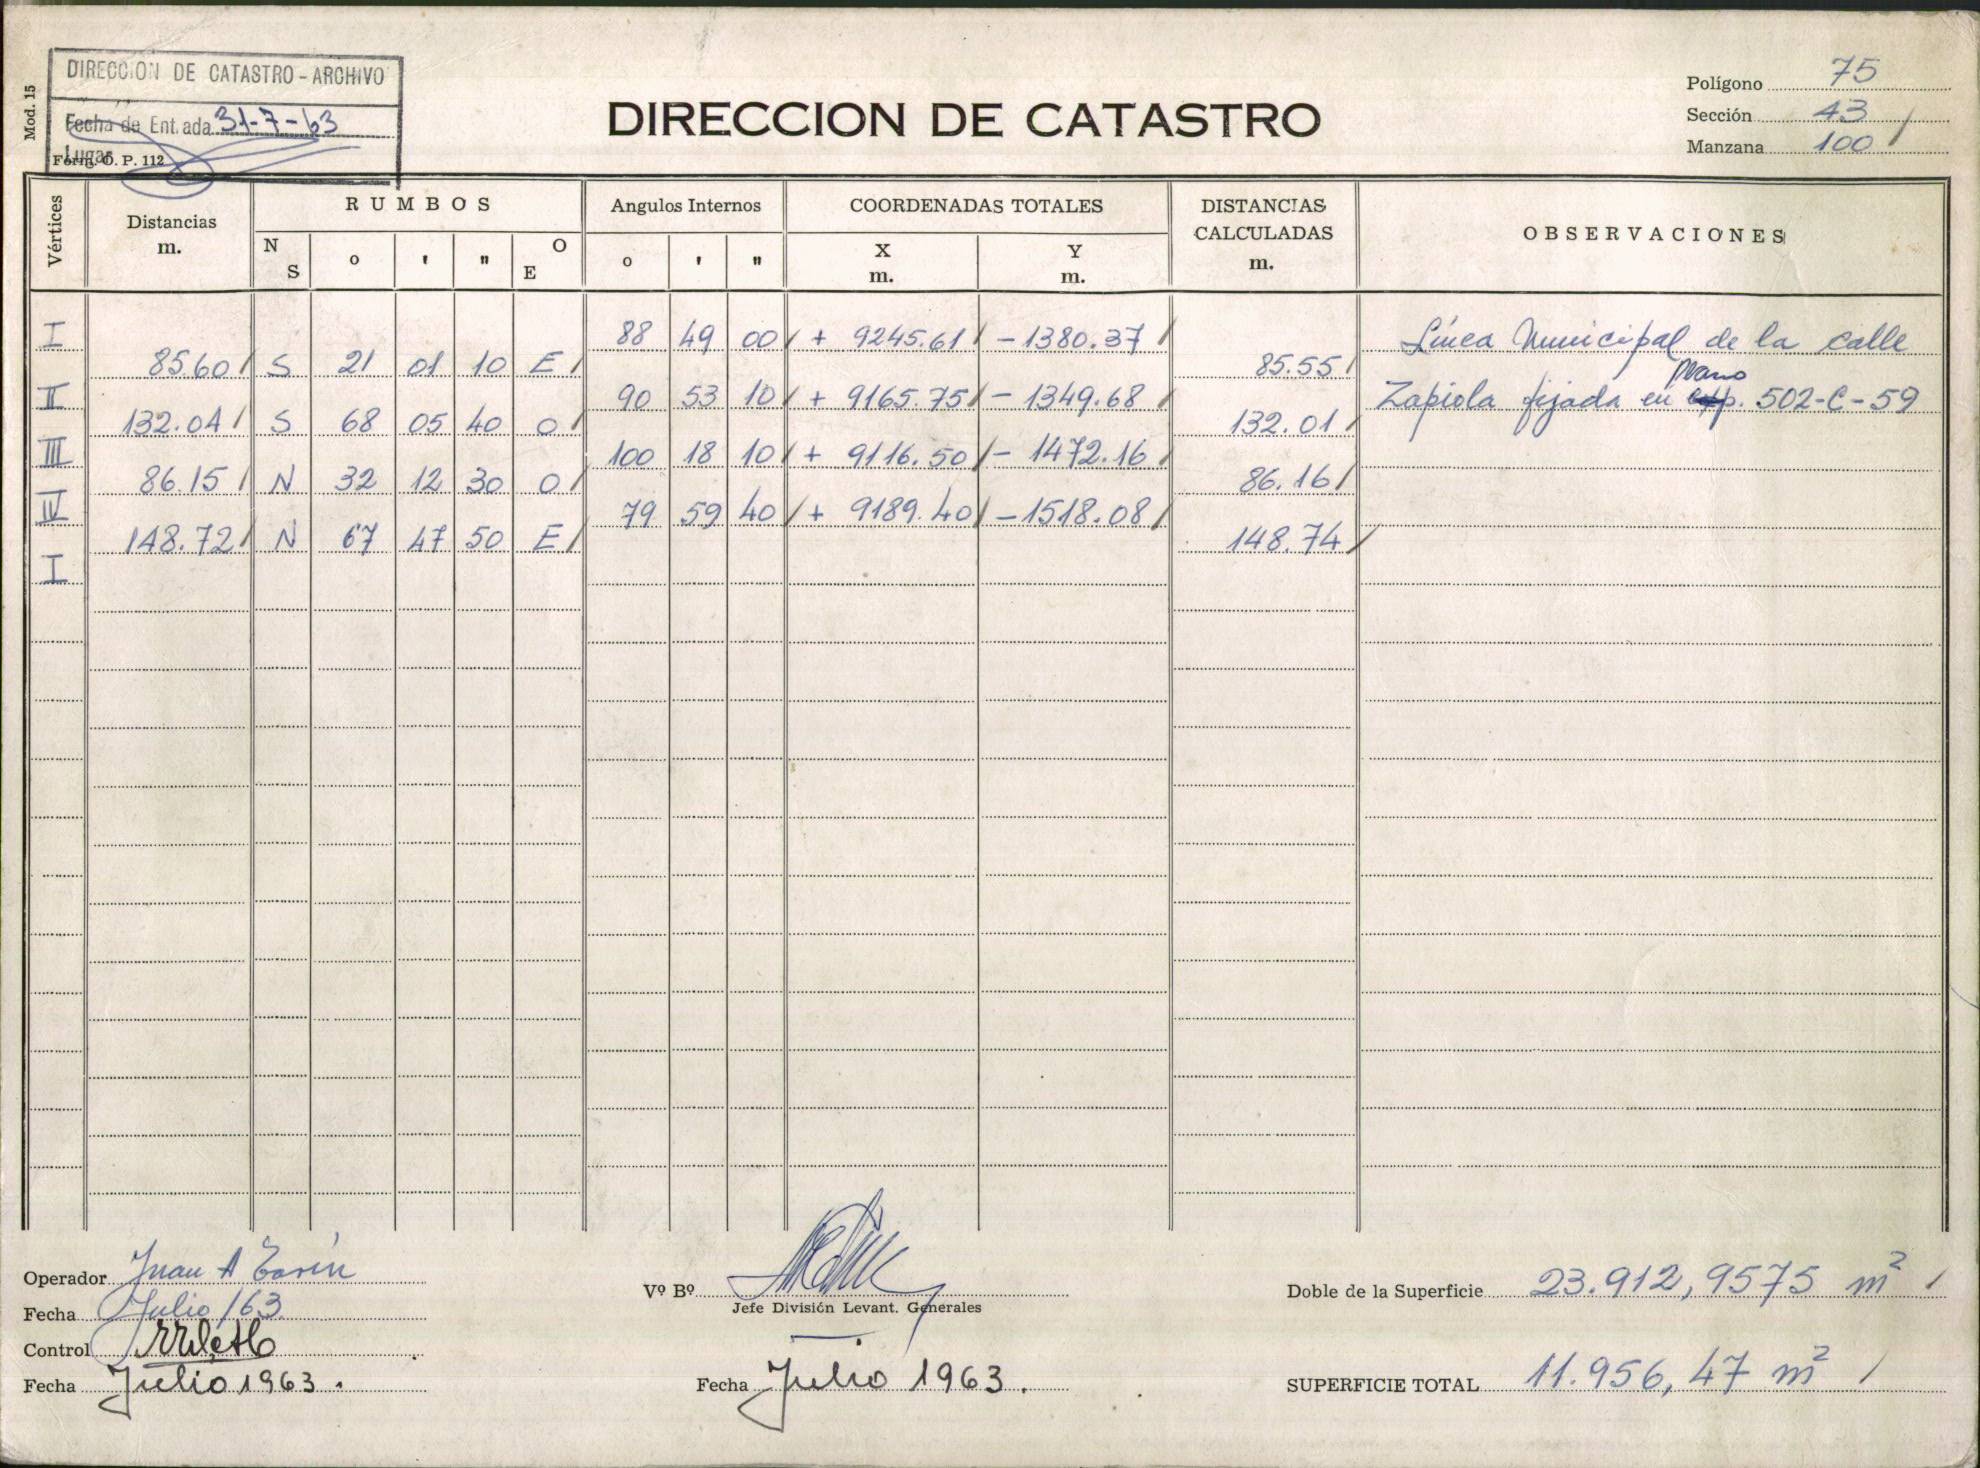 DIRECCION DE CATASTRO - ARCHIVO
Fecha de Entrada 31-7-63
Lugar
Form. O. P. 112
Mod. 15
DIRECCION DE CATASTRO
Polígono 75
Sección 43
Manzana 100
Vértices Distancias m. RUMBOS Angulos Internos COORDENADAS TOTALES DISTANCIAS CALCULADAS m. OBSERVACIONES
N S o ' " O E o ' " X m. Y m.
I 88 49 00 + 9245.61 - 1380.37 Línea Municipal de la calle
85.60 S 21 01 10 E 85.55
II 90 53 10 + 9165.75 - 1349.68 Zapiola fijada en plano 502-C-59
132.04 S 68 05 40 O 132.01
III 100 18 10 + 9116.50 - 1472.16
86.15 N 32 12 30 O 86.16
IV 79 59 40 + 9189.40 - 1518.08
148.72 N 67 47 50 E 148.74
I
Operador Juan A
Fecha Julio/63
Control
Fecha Julio 1963.
Vº Bº
Jefe División Levant. Generales
Fecha Julio 1963.
Doble de la Superficie 23.912,9575 m²
SUPERFICIE TOTAL 11.956,47 m²